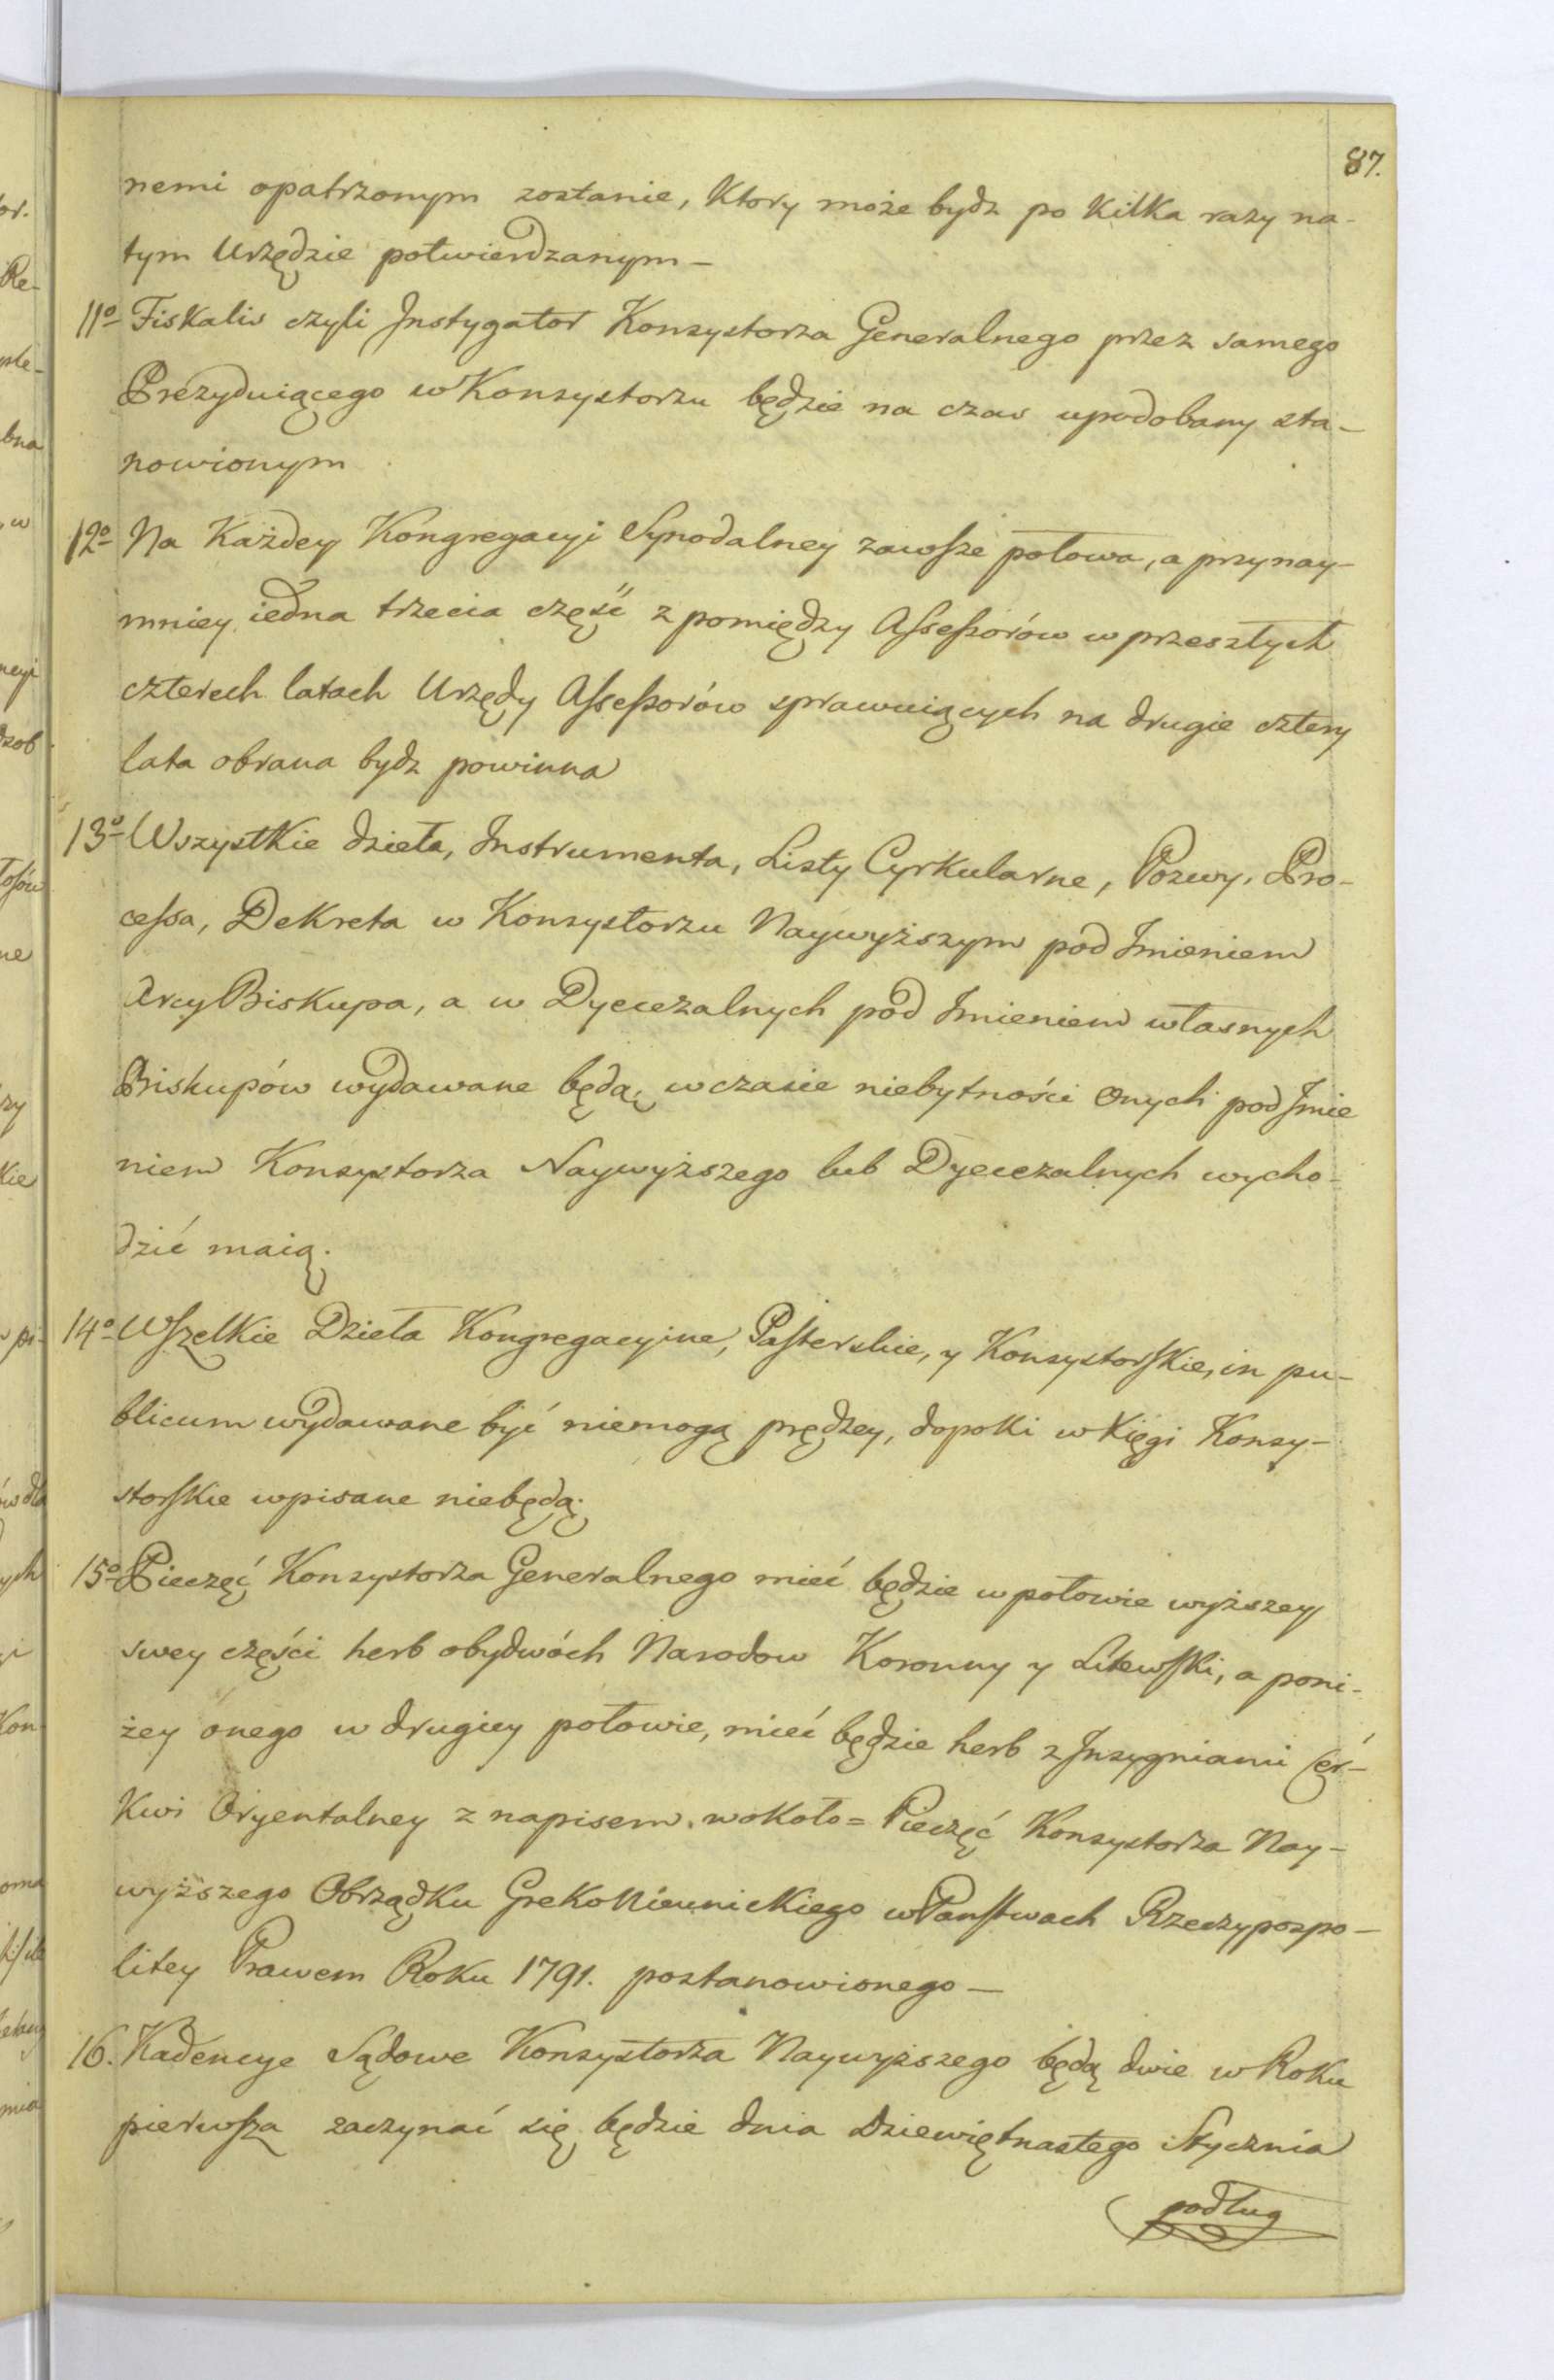 87.
nemi opatrzonym zostanie, Ktory może bydz po Kilka razy na-
tym Urzędzie potwierdzanym —
11o Fiskalis czyli Instygator Konsystorza Generalnego przez samego
Prezyduiącego w Konsystorzu będzie na czas upodobany sta-
nowionym
12o Na Każdey Kongregacyi Synodalney zawsze połowa, a przynay-
mniey iedna trzecia część z pomiędzy Assessorów w przeszłych
czterech latach Urzędy Assessorów sprawuiących na drugie cztery
lata obrana bydz powinna
13o Wszystkie dzieła, Instrumenta, Listy Cyrkularne, Pozwy, Pro-
cessa, Dekreta w Konsystorzu Naywyższym pod Imieniem
ArcyBiskupa, a w Dyecezalnych pod Imieniem własnych
Biskupów wydawane będą, w czasie niebytności onych pod Imie
niem Konsystorza Naywyższego lub Dyecezalnych wycho-
dzić maią.
14o Wszelkie Dzieła Kongregacyine, Pasterskie, y Konsystorskie, in pu-
blicum wydawane być niemogą prędzey, dopoki w Xięgi Konsy-
storskie wpisane niebędą.
15o Pieczęć Konsystorza Generalnego mieć będzie w połowie wyższey
swey części herb obydwóch Narodow Koronny y Litewski, a poni-
żey onego w drugiey połowie, mieć będzie herb z Insygniami Cer-
Kwi Oryentalney z napisem. wokoło = Pieczęć Konsystorza Nay-
wyższego Obrządku GrekoNieunickiego w Państwach Rzeczypospo-
litey Prawem Roku 1791. postanowionego —
16. Kadencye Sądowe Konsystorza Naywyższego będą dwie w Roku
pierwsza zaczynać się będzie dnia Dziewiętnastego Stycznia
podług